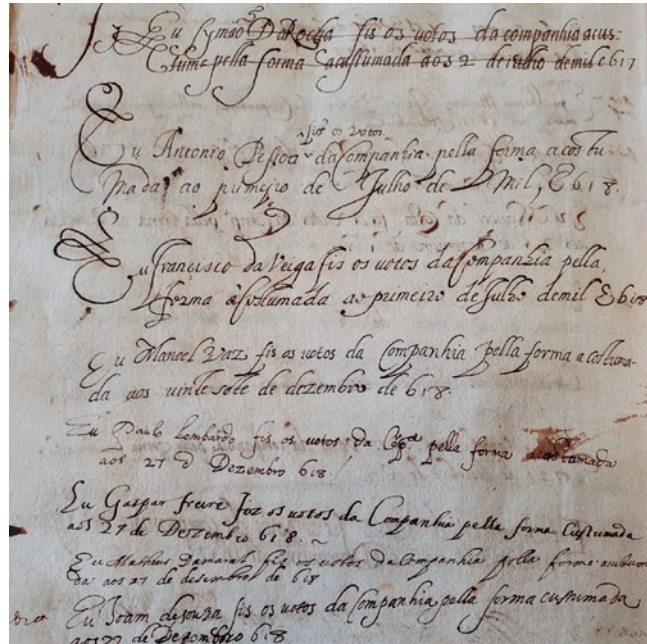 Eu symaõ Da Rocha fis os votos da companhia acus:
tume pella forma acustumada aos 2 de iulho de mil e 617
fis os votos
Eu Antonio Pessoa da Companhia pella forma acostu
mada ao primeiro de Julho de Mil, E 618.
Eu francisco da Veiga fis os votos da Companhia pella
forma acustumada ao primeiro de Julho de mil E 618
Eu Manoel Vaz fis os votos da Companhia pella forma a costuma-
da aos vinte sete de dezembro de 618.
Eu Paulo Lombardo fis os votos da Compª pella forma acostumada
aos 27 d Dezembro 618.
Eu Gaspar freire foz os votos da Companhia pella forma custumada
aos 27 de Dezembro 618.
Eu Matheus Damaral fis os votos da Companhia polla forma
da aos 27 de desembro de 618
Eu Joam de souza fis os votos da Companhia pella forma custumada
aos 27 de Dezembro 618